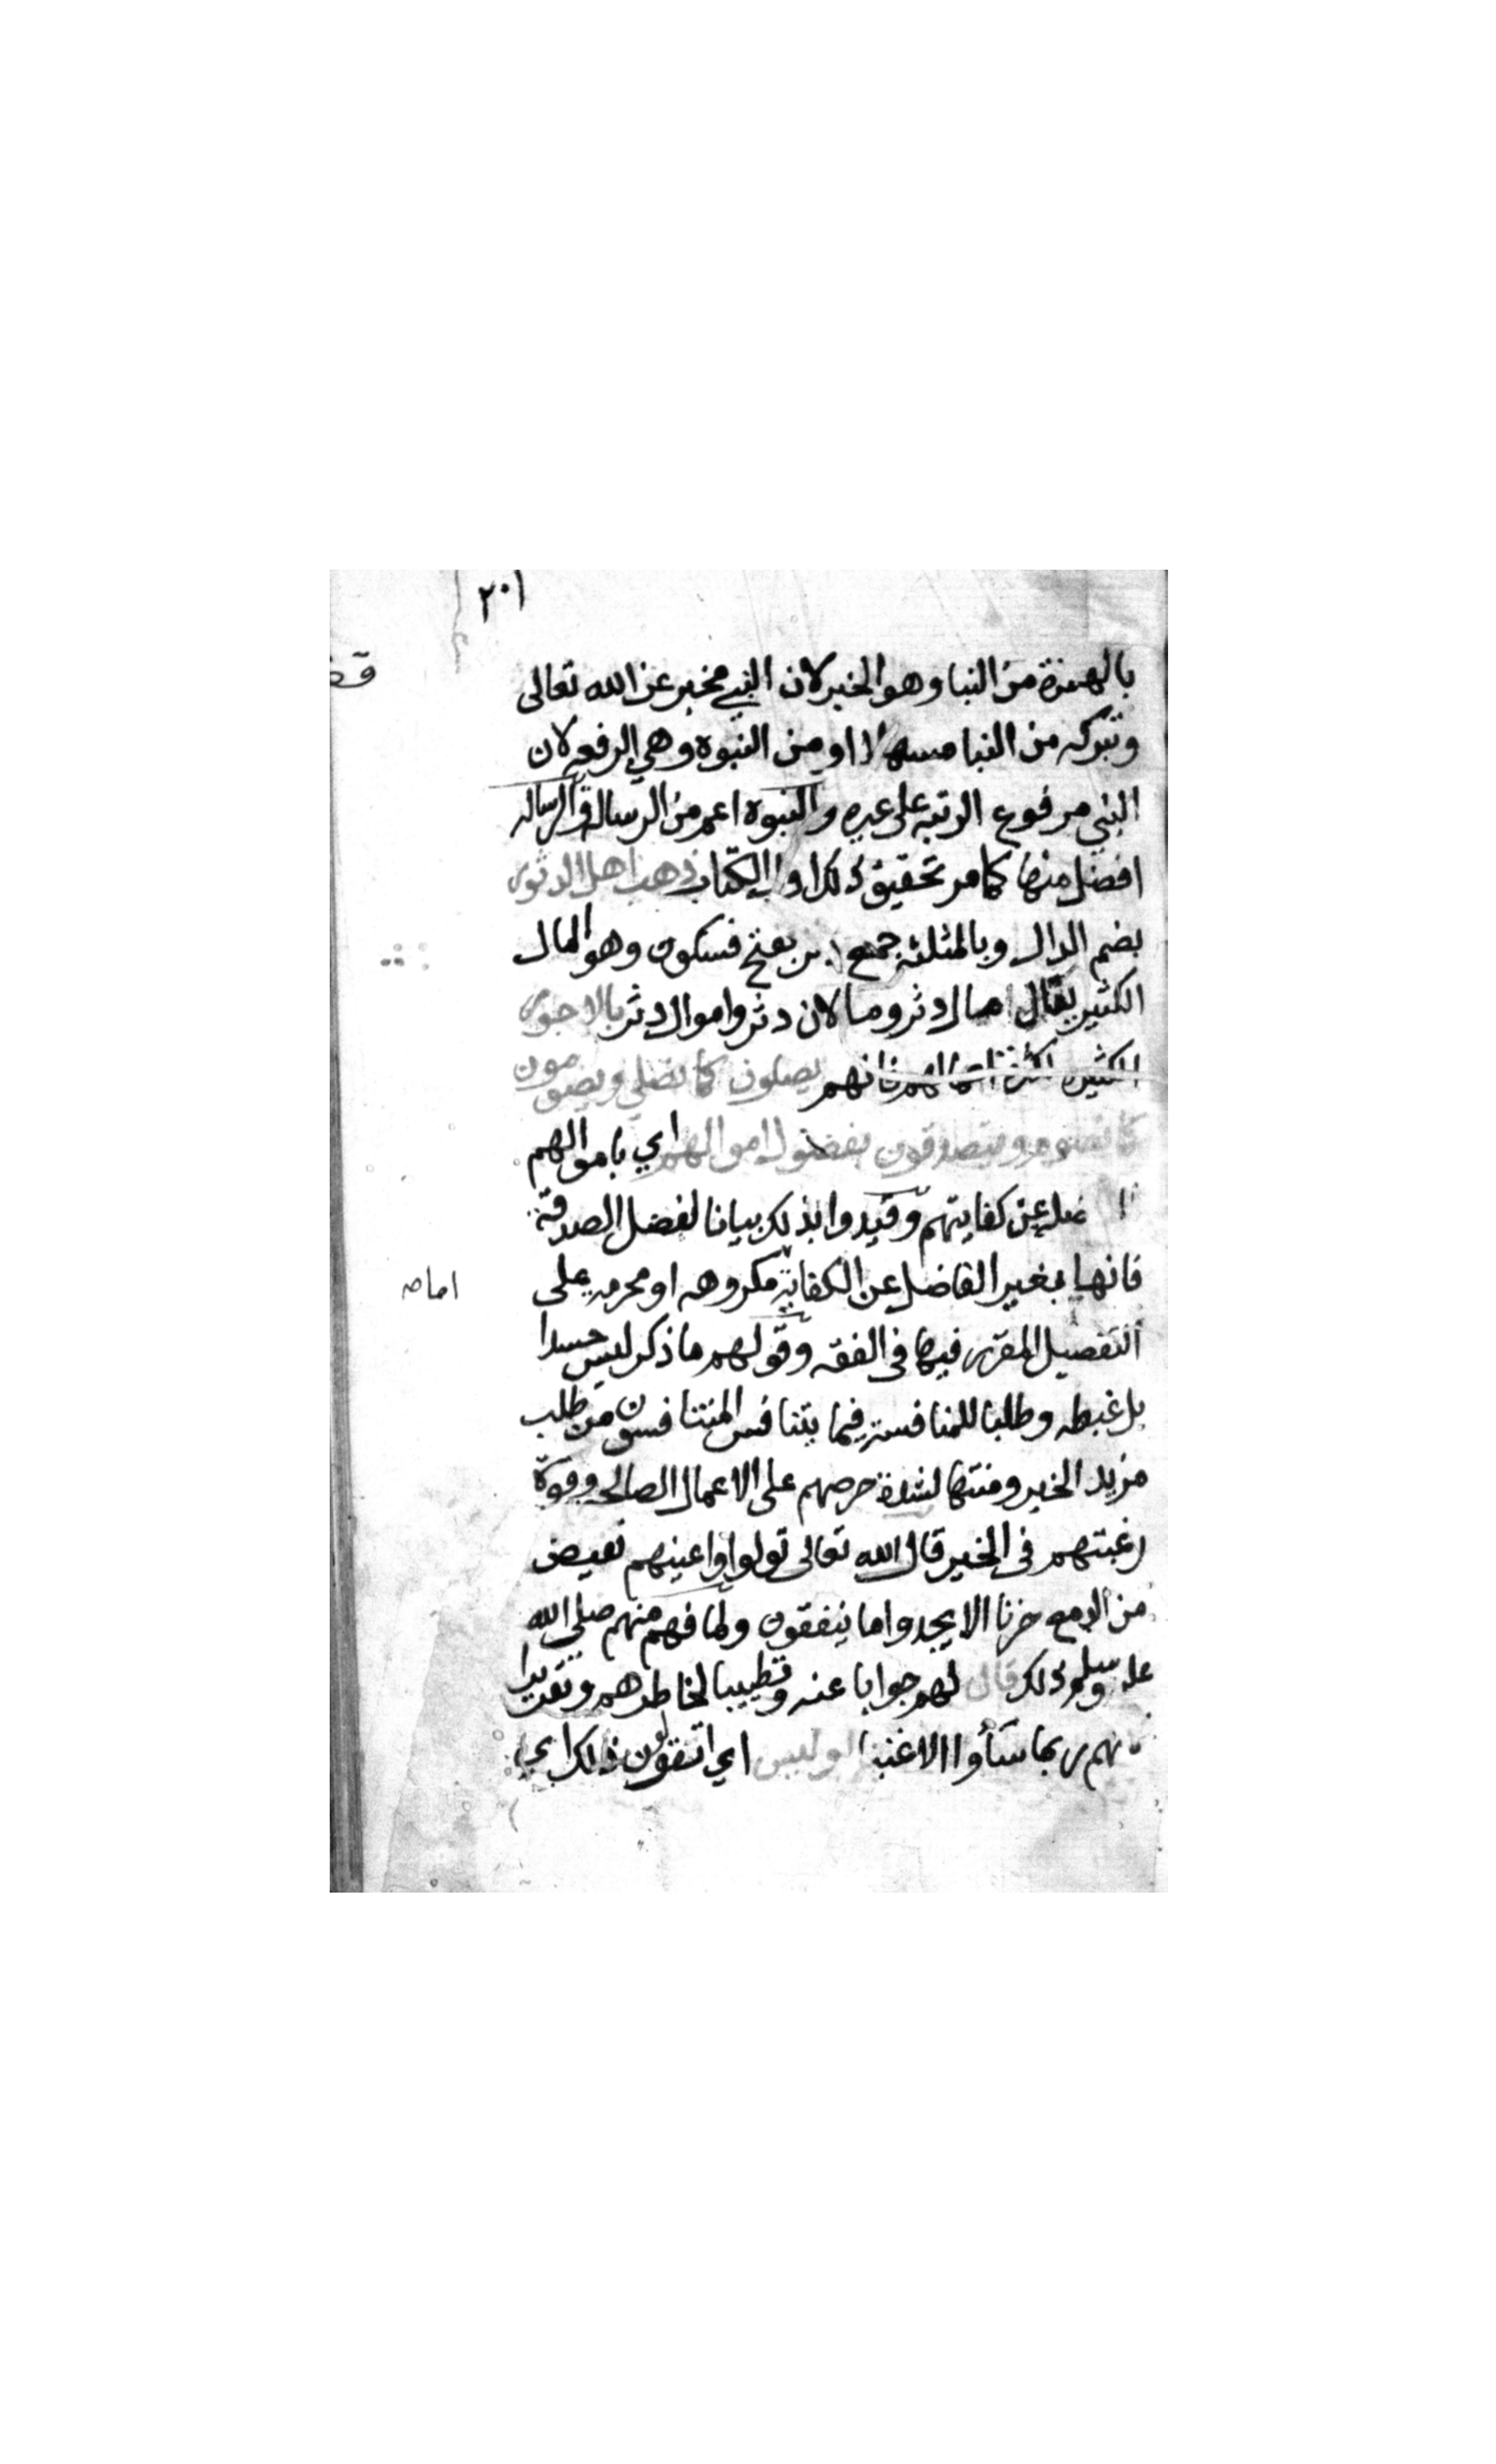 ٢٠١
بالهمزة من النبا وهو الخبر لان النبي مخبر عن الله تعالى
وبتركه من النبا مسهلا او من النبوه وهي الرفعه لان
النبي مرفوع الرتبه على غيره والنبوه اعم من الرساله والرساله
افضل منها كما مر تحقيق ذلك اول الكتاب ذهب اهل الدثور
بضم الدال وبالمثلثه جمع بفتح فسكون وهو المال
الكثير يقال مال دثر ومالان دثر واموال دثر بالاجور
الكثيره لكثرة اعمالهم فانهم يصلون كما نصلي ويصومون
كما نصوم ويتصدقون بفضول اموالهم اي باموالهم
عن كفايتهم وقيدوا بذلك بيانا لفضل الصدقة
فانها بغير الفاضل عن الكفاية مكروهه او محرمه على
امامه
التفصيل المقرر فيها في الفقه وقولهم ما ذكر ليس حسدا
بل غبطه وطلبا للمنافسة فيما يتنافس المتنافسون من طلب
مزيد الخير ومنتها لشدة حرصهم على الاعمال الصالحه وقوة
رغبتهم في الخير قال الله تعالى تولوا واعينهم تفيض
من الدمع حزنا الا يجدوا ما ينفقون ولما فهم منهم صلى الله
عليه وسلم ذلك قال لهم جوابا عنه وتطييبا لخاطرهم وتقريرا
ربما ساووا الاغنيا اوليس اي اتقولون ذلك اي